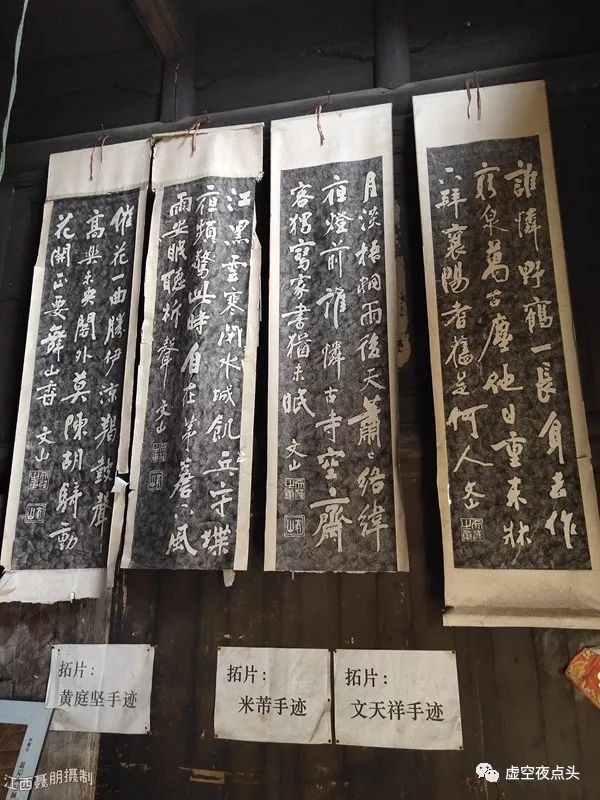 誰憐野鶴一長身去作
窮泉萬古塵他日重来牀
下拜襄陽耆舊是何人
文山
月淡梧桐雨後天蕭〻絡緯
夜燈前誰憐古寺空齋
客獨寫家書猶未眠
文山
江黑雲寒閉水城飢兵守堞
夜頻驚此時自在茅簷下風
雨安眠聽柝聲
文山
催花一曲勝伊涼羯鼓聲
高興未央閣外莫陳胡騎動
花開正要舞山香
文山
拓片：
黄庭坚手迹
拓片：
米芾手迹
拓片：
文天祥手迹
江西聂朋摄制
虚空夜点头